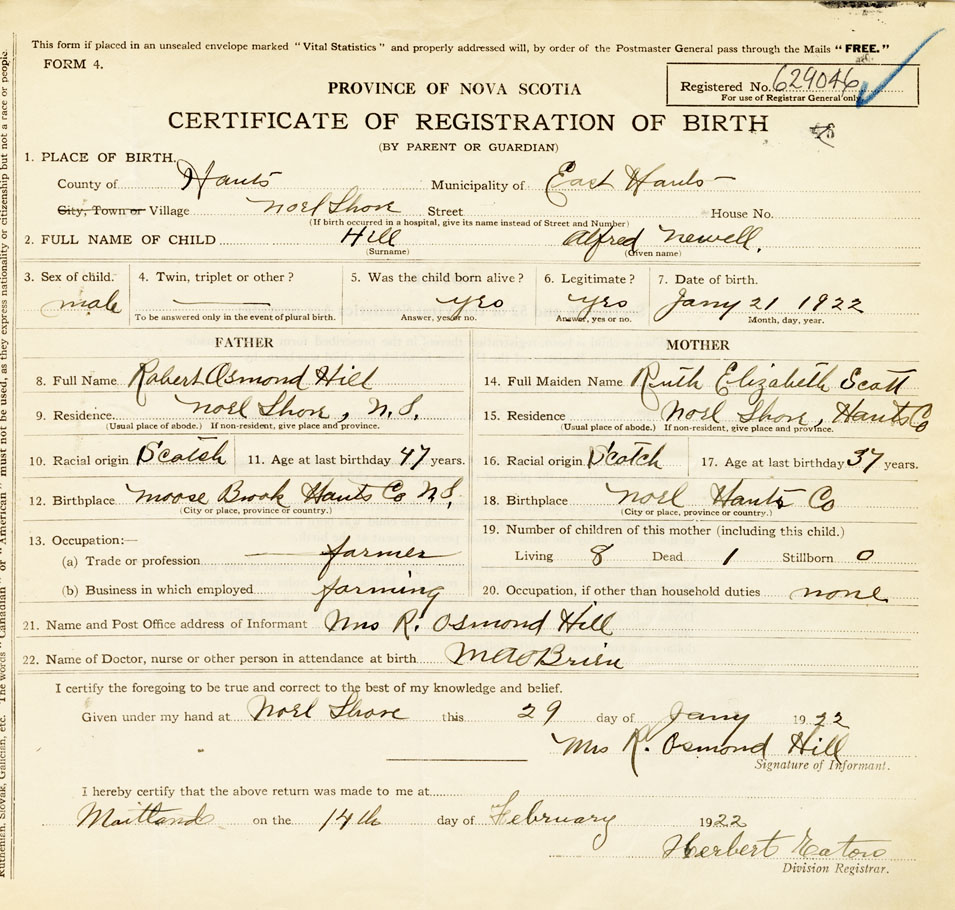 This form if placed in an unsealed envelope marked "Vital Statistics" and properly addressed will, by order of the Postmaster General pass through the Mails "FREE."
FORM 4.
Registered No. 629046
For use of Registrar General only
PROVINCE OF NOVA SCOTIA
CERTIFICATE OF REGISTRATION OF BIRTH
(BY PARENT OR GUARDIAN)
1. PLACE OF BIRTH.
County of Hants Municipality of East Hants
City, Town or Village Noel Shore Street House No.
(If birth occurred in a hospital, give its name instead of Street and Number)
2. FULL NAME OF CHILD Hill Alfred Newell,
(Surname) (Given name)
3. Sex of child. 4. Twin, triplet or other? 5. Was the child born alive? 6. Legitimate? 7. Date of birth.
male yes yes Jany 21 1922
To be answered only in the event of plural birth. Answer, yes or no. Answer, yes or no. Month, day, year.
FATHER MOTHER
8. Full Name Robert Osmond Hill 14. Full Maiden Name Ruth Elizabeth Scott
9. Residence Noel Shore, N.S. 15. Residence Noel Shore, Hants Co
(Usual place of abode.) If non-resident, give place and province. (Usual place of abode.) If non-resident, give place and province.
10. Racial origin Scotsh 11. Age at last birthday 47 years. 16. Racial origin Scotch 17. Age at last birthday 37 years.
12. Birthplace Moose Brook Hants Co N.S. 18. Birthplace Noel Hants Co
(City or place, province or country.) (City or place, province or country.)
13. Occupation:— 19. Number of children of this mother (including this child.)
(a) Trade or profession farmer Living 8 Dead 1 Stillborn 0
(b) Business in which employed farming 20. Occupation, if other than household duties none
21. Name and Post Office address of Informant Mrs R. Osmond Hill
22. Name of Doctor, nurse or other person in attendance at birth M A O'Brien
I certify the foregoing to be true and correct to the best of my knowledge and belief.
Given under my hand at Noel Shore this 29 day of Jany 1922
Mrs R. Osmond Hill
Signature of Informant.
I hereby certify that the above return was made to me at
Maitland on the 14th day of February 1922
Herbert Eaton
Division Registrar.
Ruthenian, Slovak, Galician, etc. The words "Canadian" or "American" must not be used, as they express nationality or citizenship but not a race or people.